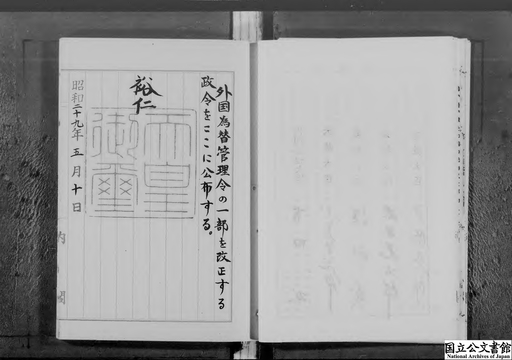 外国為替管理令の一部を改正する
政令をここに公布する。
裕仁
天皇
御璽
昭和二十九年五月十日
内閣
国立公文書館
National Archives of Japan